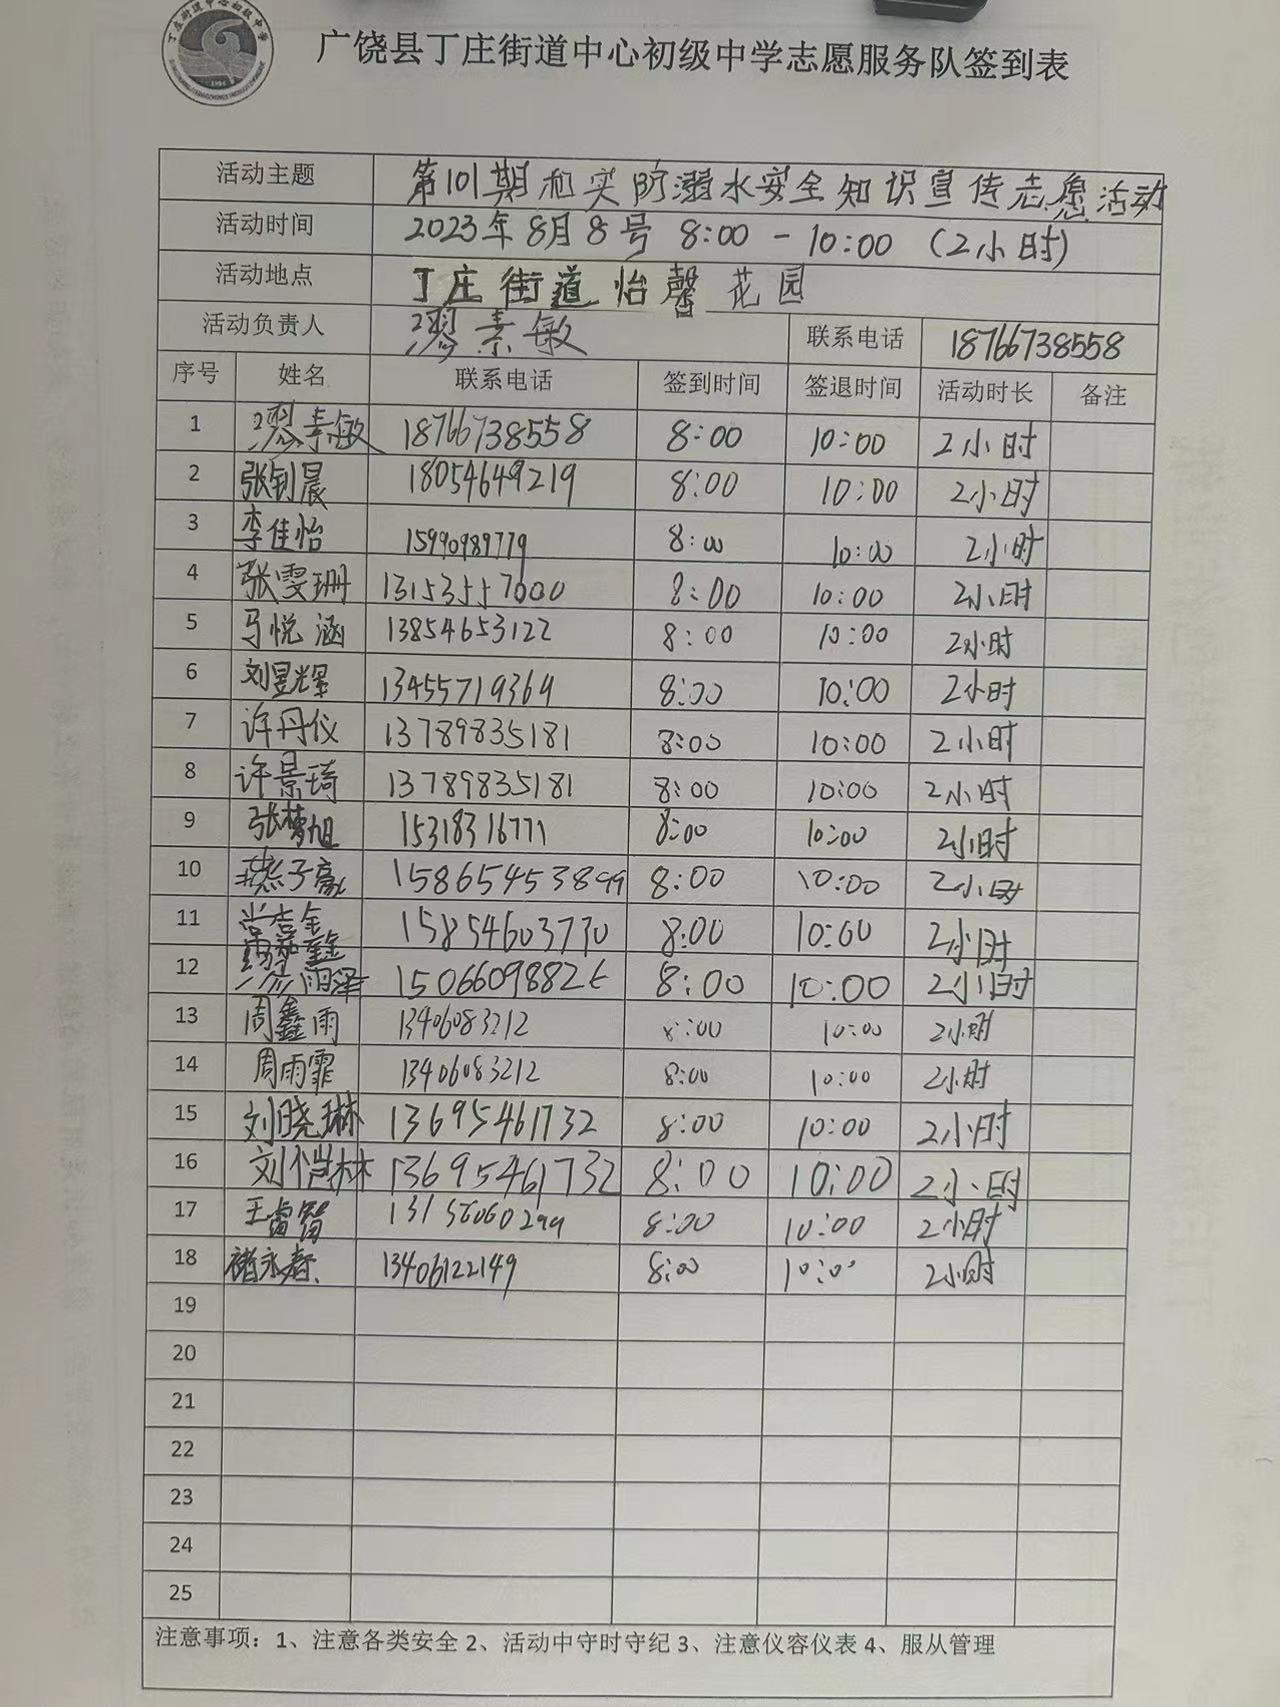 丁庄街道中心初级中学
广饶县丁庄街道中心初级中学志愿服务队签到表
活动主题 第101期和实防溺水安全知识宣传志愿活动
活动时间 2023年8月8号 8:00-10:00(2小时)
活动地点 丁庄街道怡馨花园
活动负责人 廖素敏 联系电话 18766738558
序号 姓名 联系电话 签到时间 签退时间 活动时长 备注
1 廖素敏 18766738558 8:00 10:00 2小时
2 张钊晨 18054649219 8:00 10:00 2小时
3 李佳怡 15990989779 8:00 10:00 2小时
4 张雯珊 13153557000 8:00 10:00 2小时
5 马悦涵 13854653122 8:00 10:00 2小时
6 刘昱辉 13455719369 8:00 10:00 2小时
7 许丹仪 13789835181 8:00 10:00 2小时
8 许景琦 13789835181 8:00 10:00 2小时
9 张梦旭 15318316771 8:00 10:00 2小时
10 燕子豪 15865453899 8:00 10:00 2小时
11 15854603730 8:00 10:00 2小时
12 8:00 10:00 2小时
13 周鑫雨 13406083212 8:00 10:00 2小时
14 周雨霏 13406083212 8:00 10:00 2小时
15 刘晓琳 13695461732 8:00 10:00 2小时
16 刘恺林 13695461732 8:00 10:00 2小时
17 王睿智 8:00 10:00 2小时
18 褚永春 13406122149 8:00 10:00 2小时
19
20
21
22
23
24
25
注意事项：1、注意各类安全 2、活动中守时守纪 3、注意仪容仪表 4、服从管理